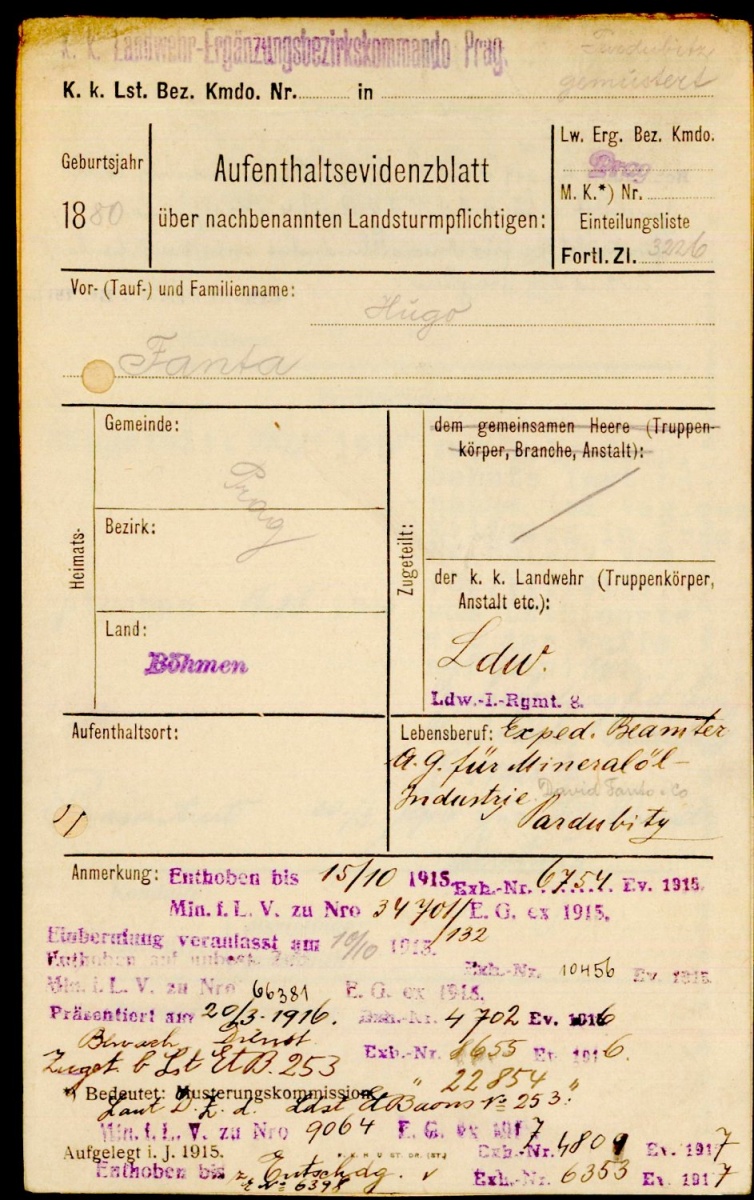 K. k. Landwehr-Ergänzungsbezirkskommando Prag.
Pardubitz
gemustert
K. k. Lst. Bez. Kmdo. Nr. in
Geburtsjahr
1880
Aufenthaltsevidenzblatt
über nachbenannten Landsturmpflichtigen:
Lw. Erg. Bez. Kmdo.
Prag
M. K.*) Nr.
Einteilungsliste
Fortl. Zl. 3226
Vor- (Tauf-) und Familienname:
Hugo
Fanta
Heimats-
Gemeinde:
Prag
Bezirk:
Land:
Böhmen
Zugeteilt:
dem gemeinsamen Heere (Truppen-
körper, Branche, Anstalt):
der k. k. Landwehr (Truppenkörper,
Anstalt etc.):
Ldw.
Ldw.-I.-Rgmt. 8.
Aufenthaltsort:
Lebensberuf: Exped. Beamter
A. G. für Mineralöl-
Industrie David Fanto & Co
Pardubitz
Anmerkung: Enthoben bis 15/10 1915. Exh.-Nr. 6754 Ev. 1915.
Min. f. L. V. zu Nro 34701/132 E. G. ex 1915.
Einberufung veranlasst am 10/10 1915.
Enthoben auf unbest. Zeit Exh.-Nr. 10456 Ev. 1915.
Min. f. L. V. zu Nro 66381 E. G. ex 1915.
Präsentiert am 20/3 1916. Exh.-Nr. 4702 Ev. 1916
Dienst Exh.-Nr. 8655 Ev. 1916.
Zuget. b Lst Et B. 253 " 22854 "
*) Bedeutet: Musterungskommission.
Laut D. Z. d. Ldst Et Baons No 253.
Min. f. L. V. zu Nro 9064 E. G. ex 1917
Aufgelegt i. J. 1915. Exh.-Nr. 4809 Ev. 1917
Enthoben bis z. Entschdg. Exh.-Nr. 6353 Ev. 1917
z No 6398